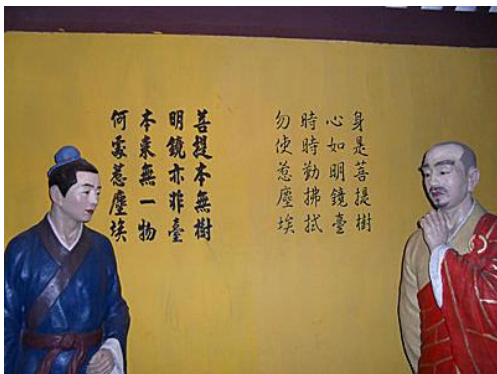 身是菩提樹
心如明鏡臺
時時勤拂拭
勿使惹塵埃
菩提本無樹
明鏡亦非臺
本來無一物
何處惹塵埃